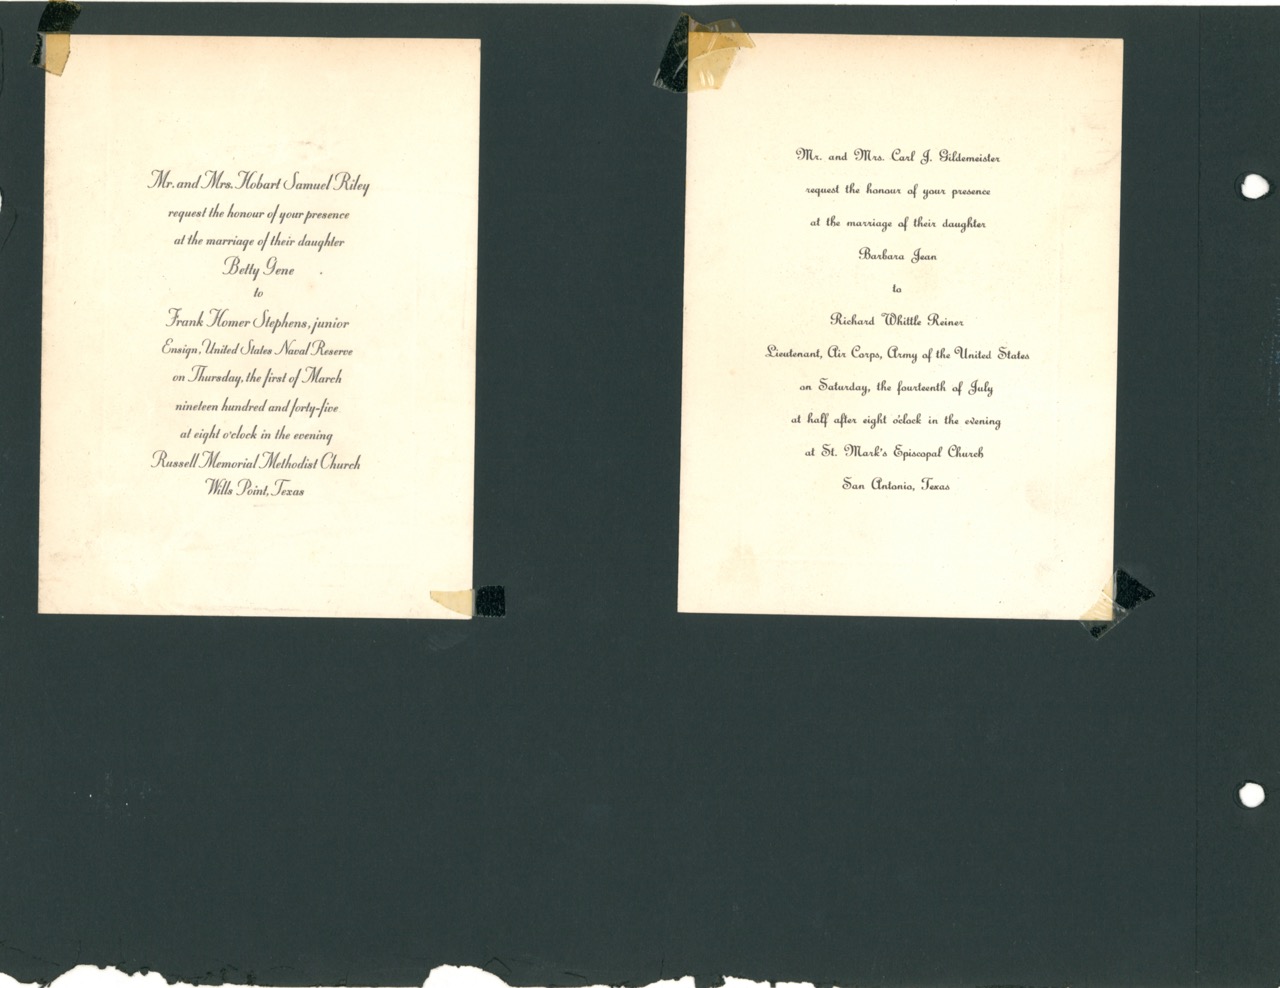 Mr. and Mrs. Hobart Samuel Riley
request the honour of your presence
at the marriage of their daughter
Betty Gene
to
Frank Homer Stephens, junior
Ensign, United States Naval Reserve
on Thursday, the first of March
nineteen hundred and forty-five
at eight o'clock in the evening
Russell Memorial Methodist Church
Wills Point, Texas
Mr. and Mrs. Carl J. Gildemeister
request the honour of your presence
at the marriage of their daughter
Barbara Jean
to
Richard Whittle Reiner
Lieutenant, Air Corps, Army of the United States
on Saturday, the fourteenth of July
at half after eight o'clock in the evening
at St. Mark's Episcopal Church
San Antonio, Texas